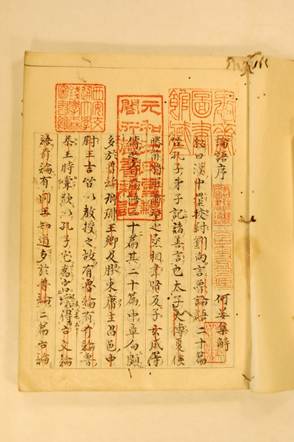 論語序　何晏集解
敘曰漢中壘校尉劉向言魯論語二十篇
皆孔子弟子記諸善言也太子太傅夏侯
勝前將軍蕭望之丞相韋賢及子玄成等
傳之齊論語二十二篇其二十篇中章句頗
多於魯論琅琊王卿及膠東庸生昌邑中
尉王吉皆以教授之故有魯論有齊論魯
恭王時嘗欲以孔子宅為宮壞得古文論
語齊論有問王知道多於魯論二篇古論